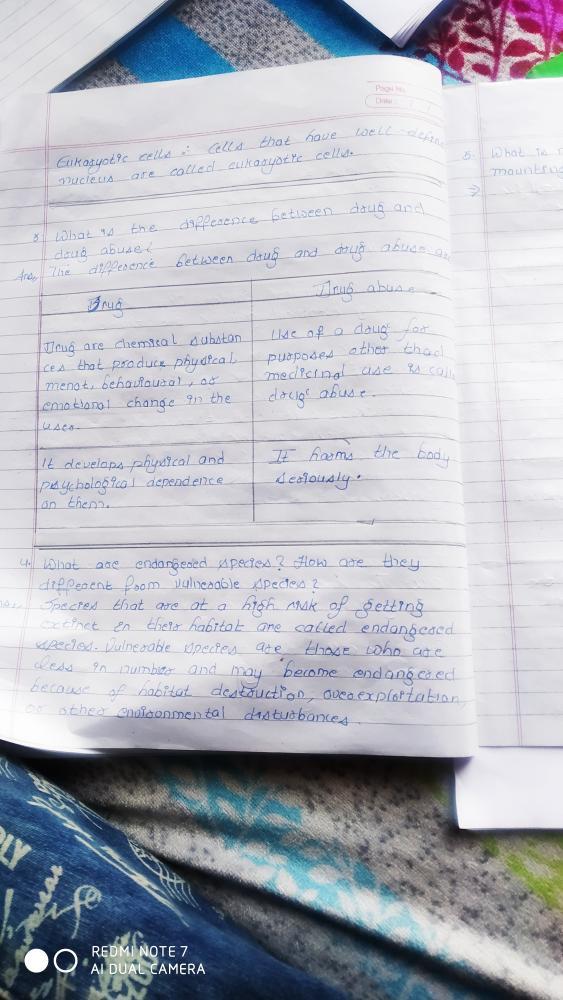 Page No.
Date: / /
Eukaryotic cells : Cells that have well-define
nucleus are called eukaryotic cells.
What is the difference between drug and
drug abuse?
Ans. The difference between drug and drug abuse are
Drug
Drug abuse
Drug are chemical substan
ces that produce physical,
menat, behavioural, or
emotional change in the
user.
Use of a drug for
purposes other than
medicinal use is call
drug abuse.
It develops physical and
psychological dependence
on them.
It harms the body
seriously.
4. What are endangered species? How are they
different from vulnerable species?
Species that are at a high risk of getting
extinct in their habitat are called endangered
species. Vulnerable species are those who are
less in number and may become endangered
because of habitat destruction, overexploitation,
or other environmental disturbances.
5. What is
mounting
REDMI NOTE 7
AI DUAL CAMERA